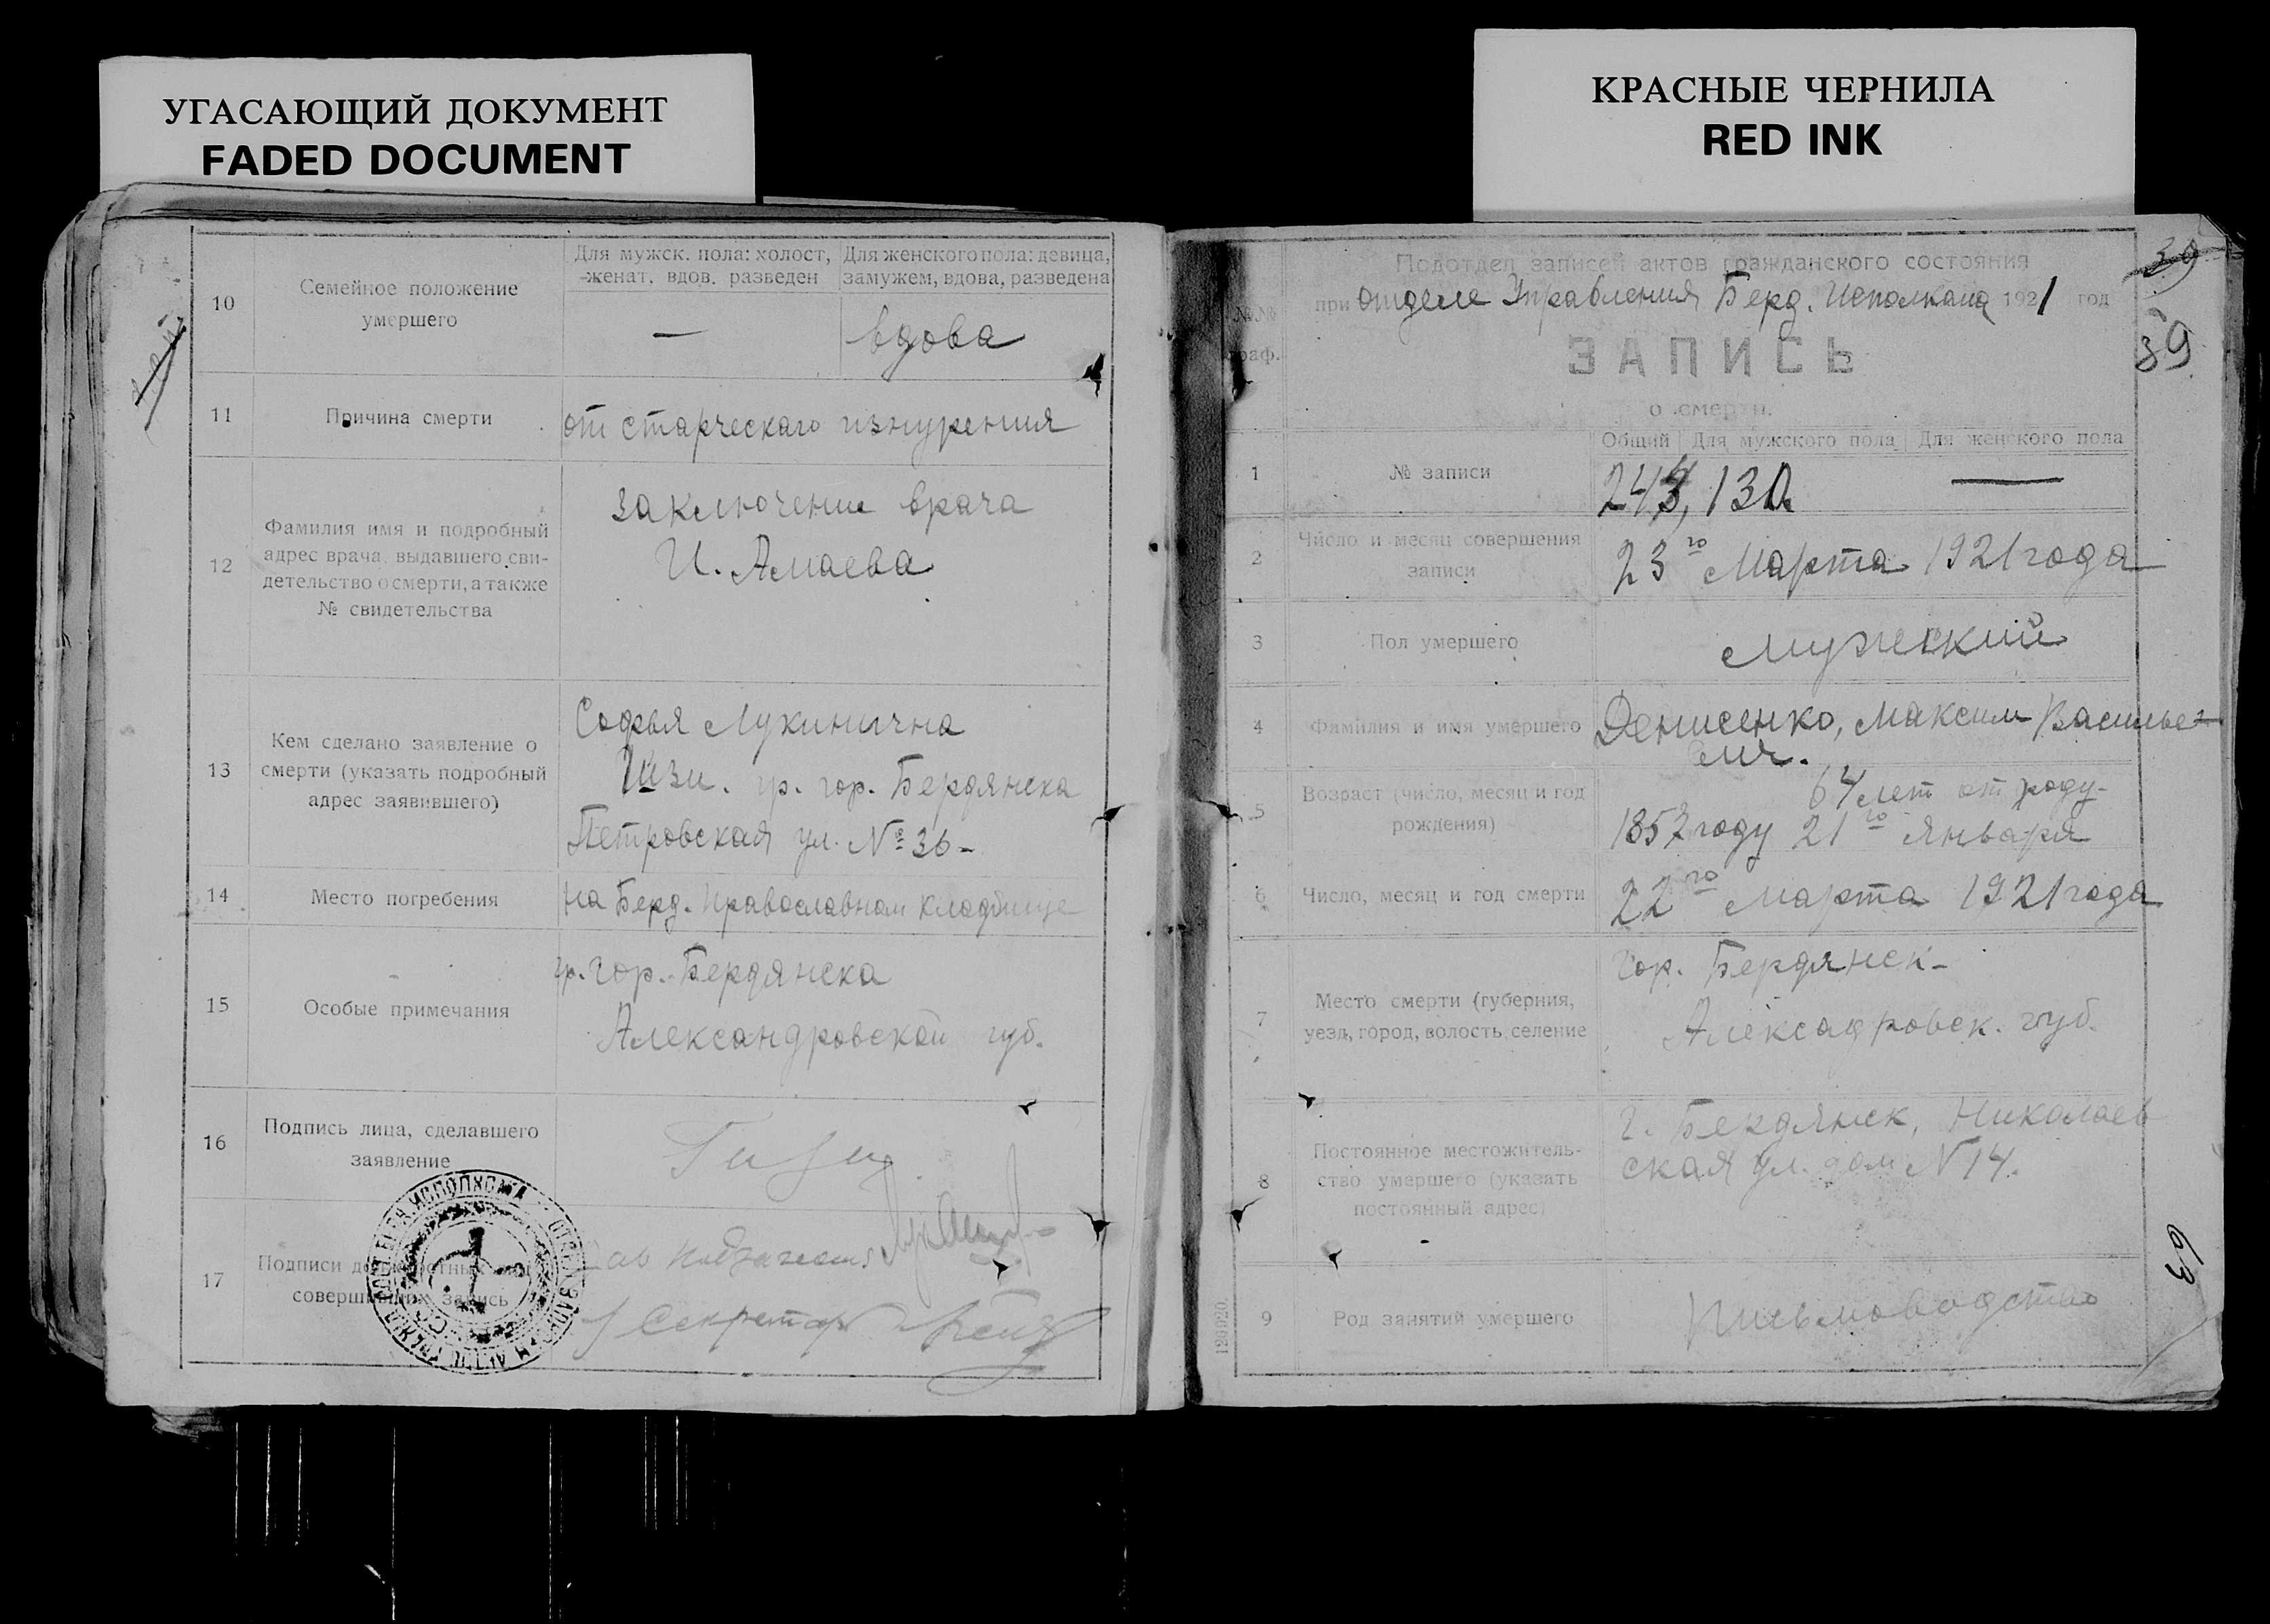 УГАСАЮЩИЙ ДОКУМЕНТ
FADED DOCUMENT
КРАСНЫЕ ЧЕРНИЛА
RED INK
10
Семейное положение
умершего
Для мужск. пола: холост,
женат, вдов. разведен
Для женского пола: девица,
замужем, вдова, разведена
—
вдова
11
Причина смерти
от старческаго изнурения
12
Фамилия имя и подробный
адрес врача, выдавшего сви-
детельство о смерти, а также
№ свидетельства
заключение врача
И. Амаева
13
Кем сделано заявление о
смерти (указать подробный
адрес заявившего)
Софья Лукинична
Гизи. гр. гор. Бердянска
Петровская ул. № 36-
14
Место погребения
на Берд. православном кладбище
15
Особые примечания
гр. гор. Бердянска
Александровской губ.
16
Подпись лица, сделавшего
заявление
Гизи
17
Подписи
совершивших запись
Секретарь
39
39
Подотдел записей актов гражданского состояния
при отделе Управления Берд. Исполкома 1921 год
№№
граф.
ЗАПИСЬ
о смерти.
Общий
Для мужского пола
Для женского пола
1
№ записи
—
2
Число и месяц совершения
записи
23го Марта 1921 года
3
Пол умершего
мужеский
4
Фамилия и имя умершего
Денисенко, Максим Василье=
вич.
5
Возраст (число, месяц и год
рождения)
64 лет от роду-
1857 году 21го января
6
Число, месяц и год смерти
22го марта 1921 года
7
Место смерти (губерния,
уезд, город, волость, селение
гор. Бердянск-
Алексадровск. губ.
8
Постоянное местожитель-
ство умершего (указать
постоянный адрес)
г. Бердянск, Николаев
ская ул. дом N 14.
9
Род занятий умершего
Письмоводство
63